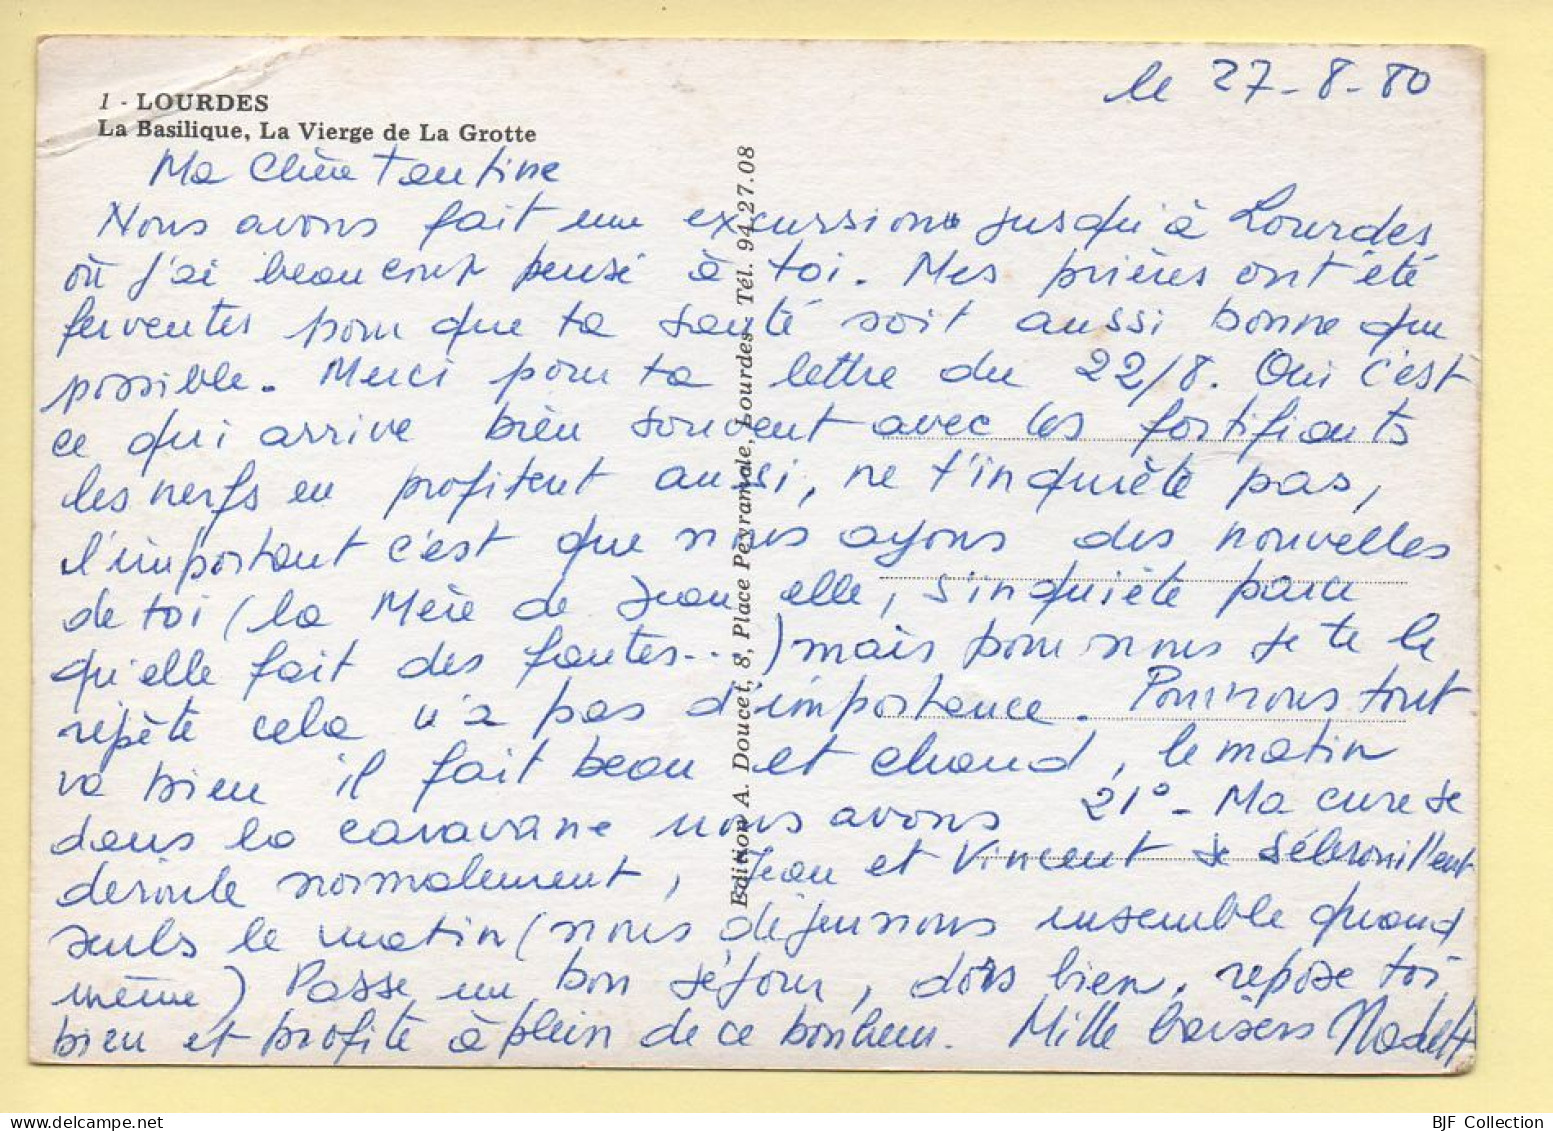 le 27-8-80
1 - LOURDES
La Basilique, La Vierge de La Grotte
Ma Chère Tantine
Nous avons fait une excursion jusqu'à Lourdes
où j'ai beaucoup pensé à toi. Mes prières ont été
ferventes pour que ta santé soit aussi bonne que
possible. Merci pour ta lettre du 22/8. Oui c'est
ce qui arrive bien souvent avec les fortifiants
les nerfs en profitent aussi, ne t'inquiète pas,
l'important c'est que nous ayons des nouvelles
de toi (la Mère de Jean elle, s'inquiète parce
qu'elle fait des fautes...) mais pour nous je te le
répète cela n'a pas d'importance. Pour nous tout
va bien il fait beau et chaud, le matin
dans la caravane nous avons 21° - Ma cure se
déroule normalement, Jean et Vincent se débrouillent
seuls le matin (nous déjeunons ensemble quand
même) Passe un bon séjour, dors bien, repose toi
bien et profite à plein de ce bonheur. Mille baisers
Edition A. Doucet, 8, Place Peyramale, Lourdes - Tél. 94.27.08
BJF Collection